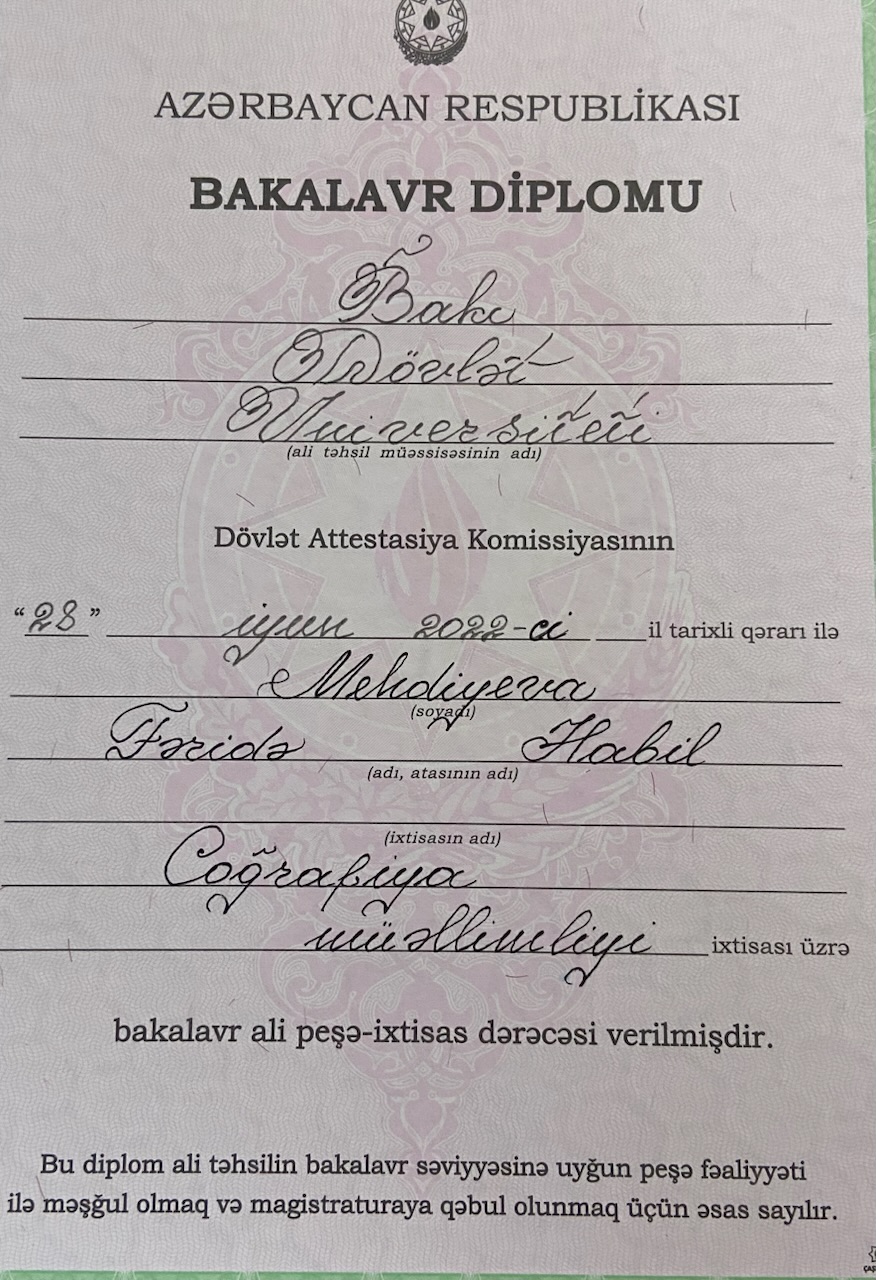 AZƏRBAYCAN RESPUBLİKASI
BAKALAVR DİPLOMU
Bakı
Dövlət
Universiteti
(ali təhsil müəssisəsinin adı)
Dövlət Attestasiya Komissiyasının
“28” iyun 2022-ci il tarixli qərarı ilə
Mehdiyeva
(soyadı)
Fəridə Habil
(adı, atasının adı)
(ixtisasın adı)
Coğrafiya
müəllimliyi ixtisası üzrə
bakalavr ali peşə-ixtisas dərəcəsi verilmişdir.
Bu diplom ali təhsilin bakalavr səviyyəsinə uyğun peşə fəaliyyəti
ilə məşğul olmaq və magistraturaya qəbul olunmaq üçün əsas sayılır.